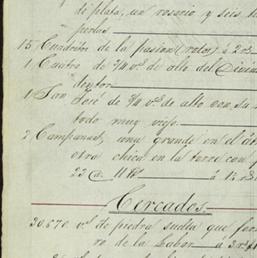 de plata, un rosario y seis h
perlas
15 Cuadritos de la pasion (rotos) á 2 rs
1 Cuadro de 3/4 vs de alto del Divin
1 San José de 3/4 vs de alto con su
todo muy viejo
2 Campanas, una grande en el
otra chica en la torre con p
Cercados.
30,670 vs de piedra suelta que for
ro de la labor á 3